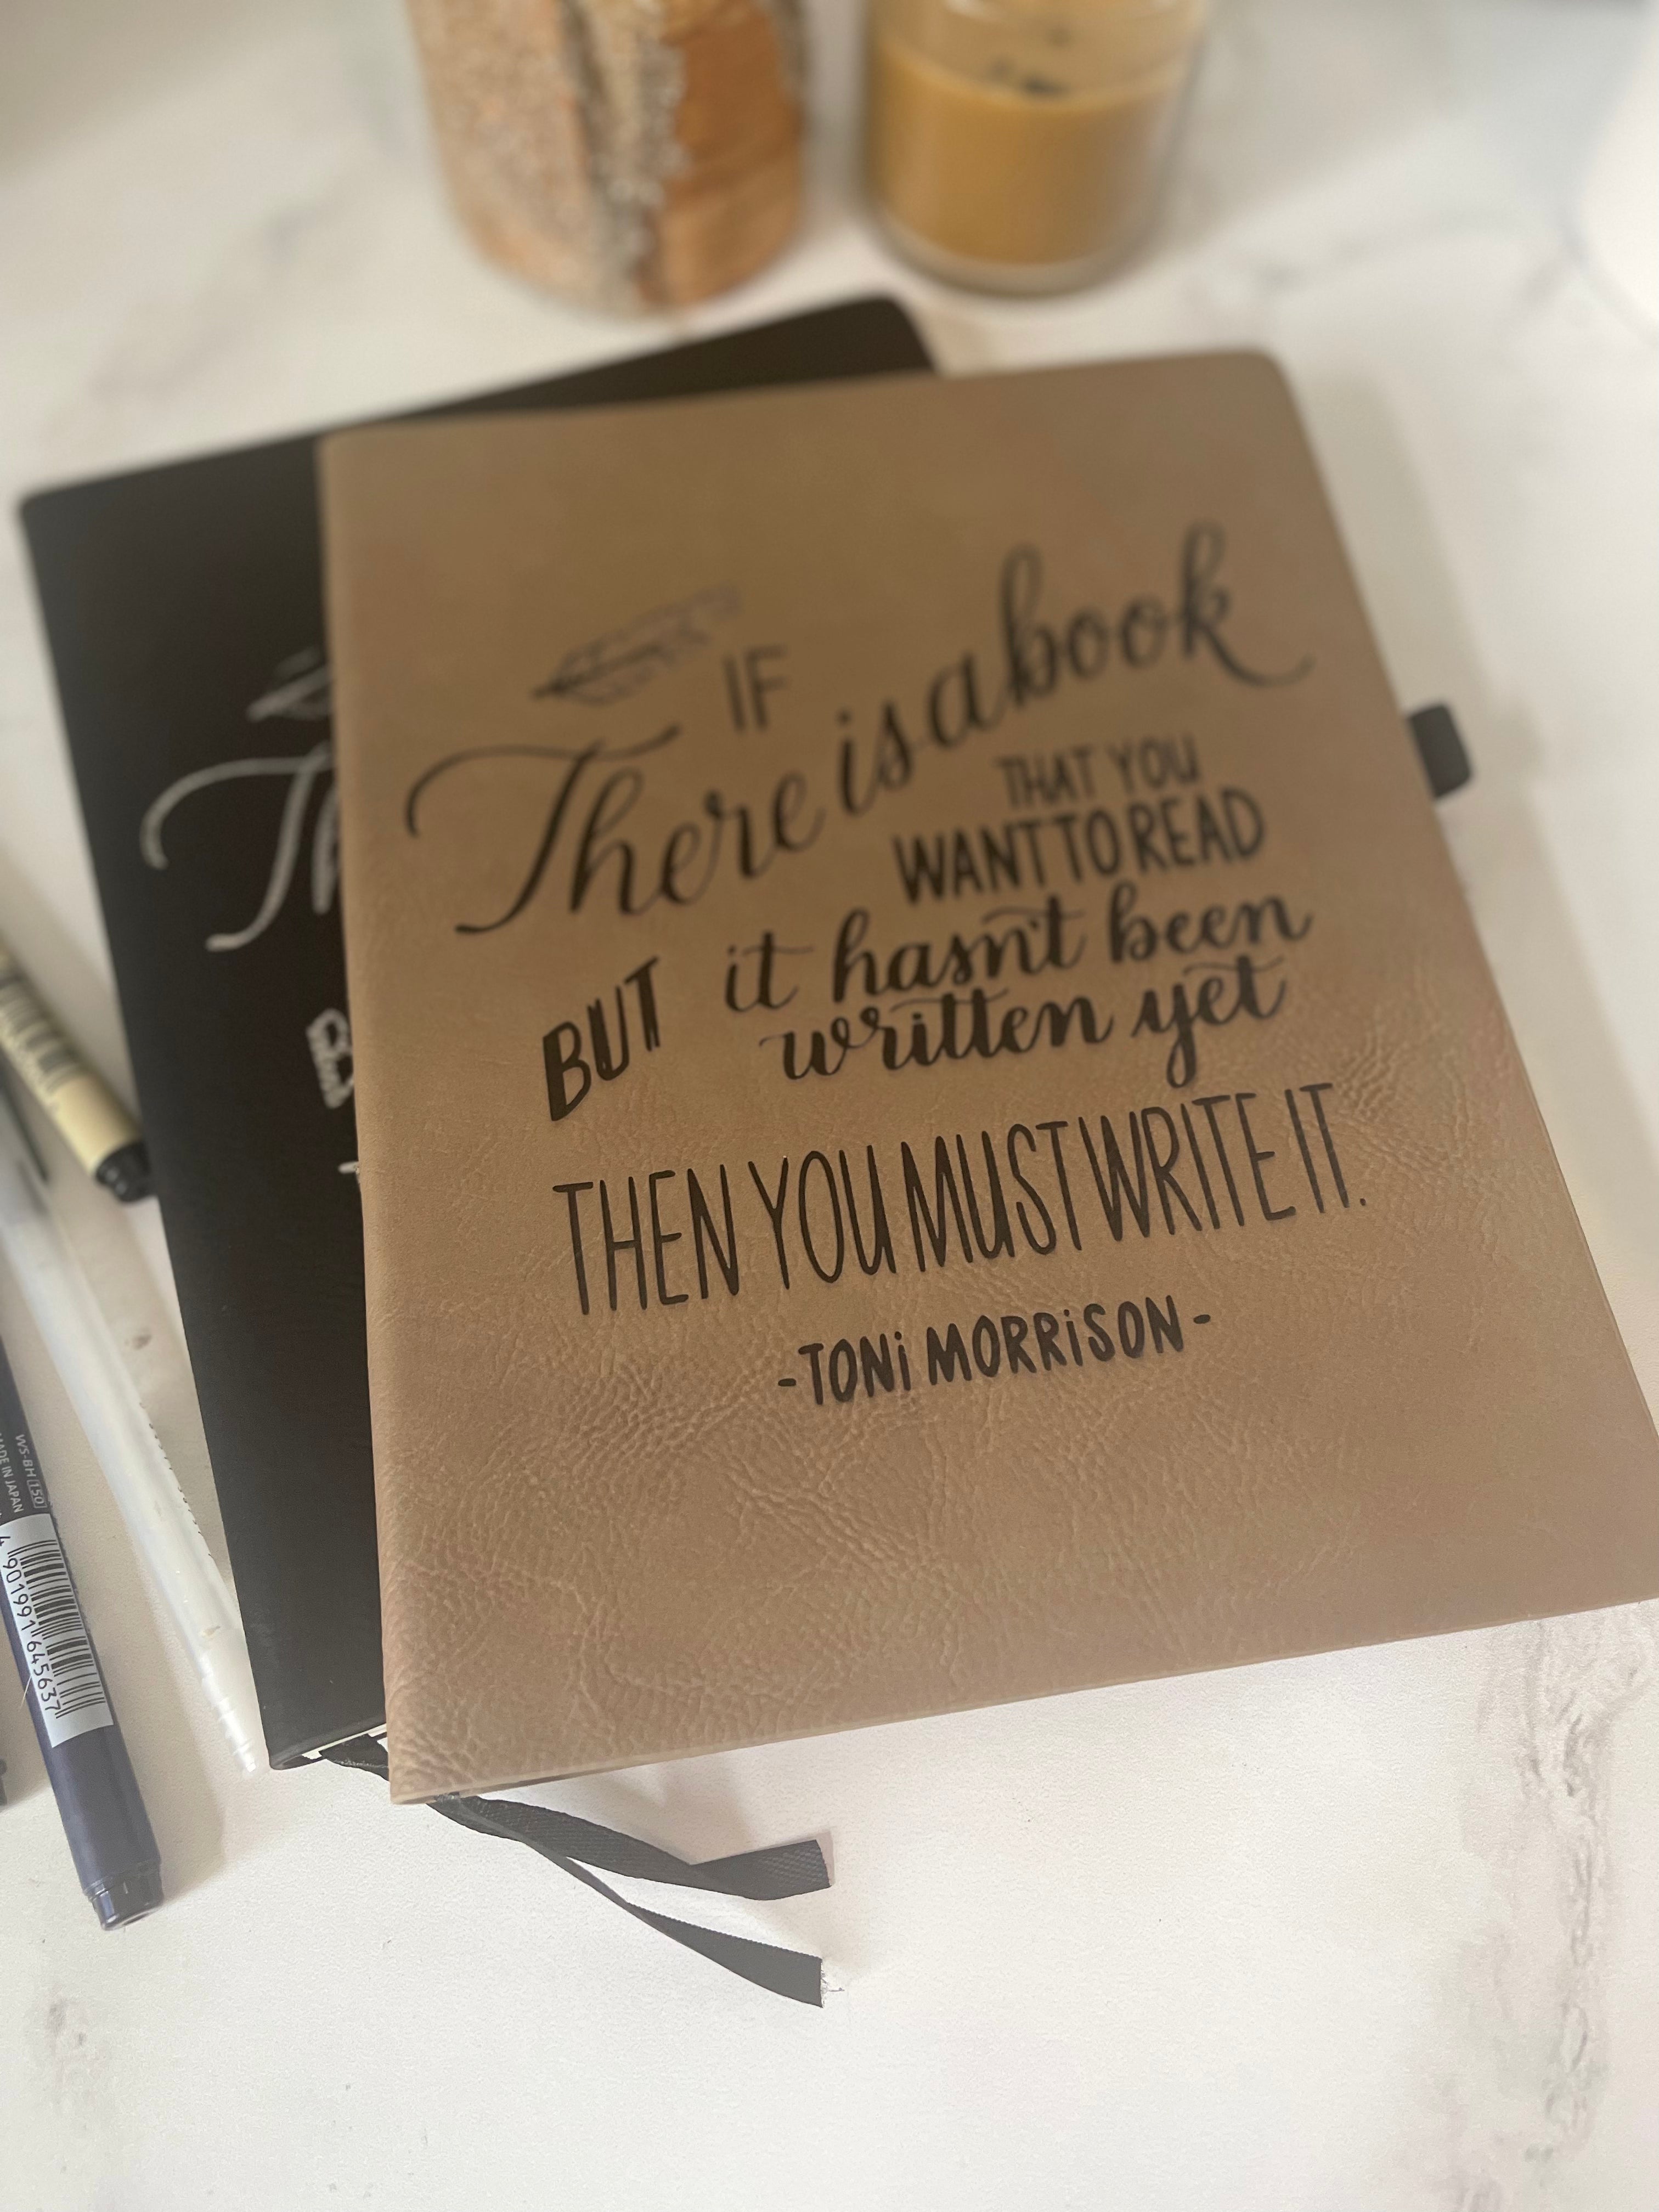 IF
There is a book
THAT YOU
WANT TO READ
BUT it hasn't been
written yet
THEN YOU MUST WRITE IT.
-TONi MORRiSON-
Th
WS-BH 150
MADE IN JAPAN
4 901991 645637